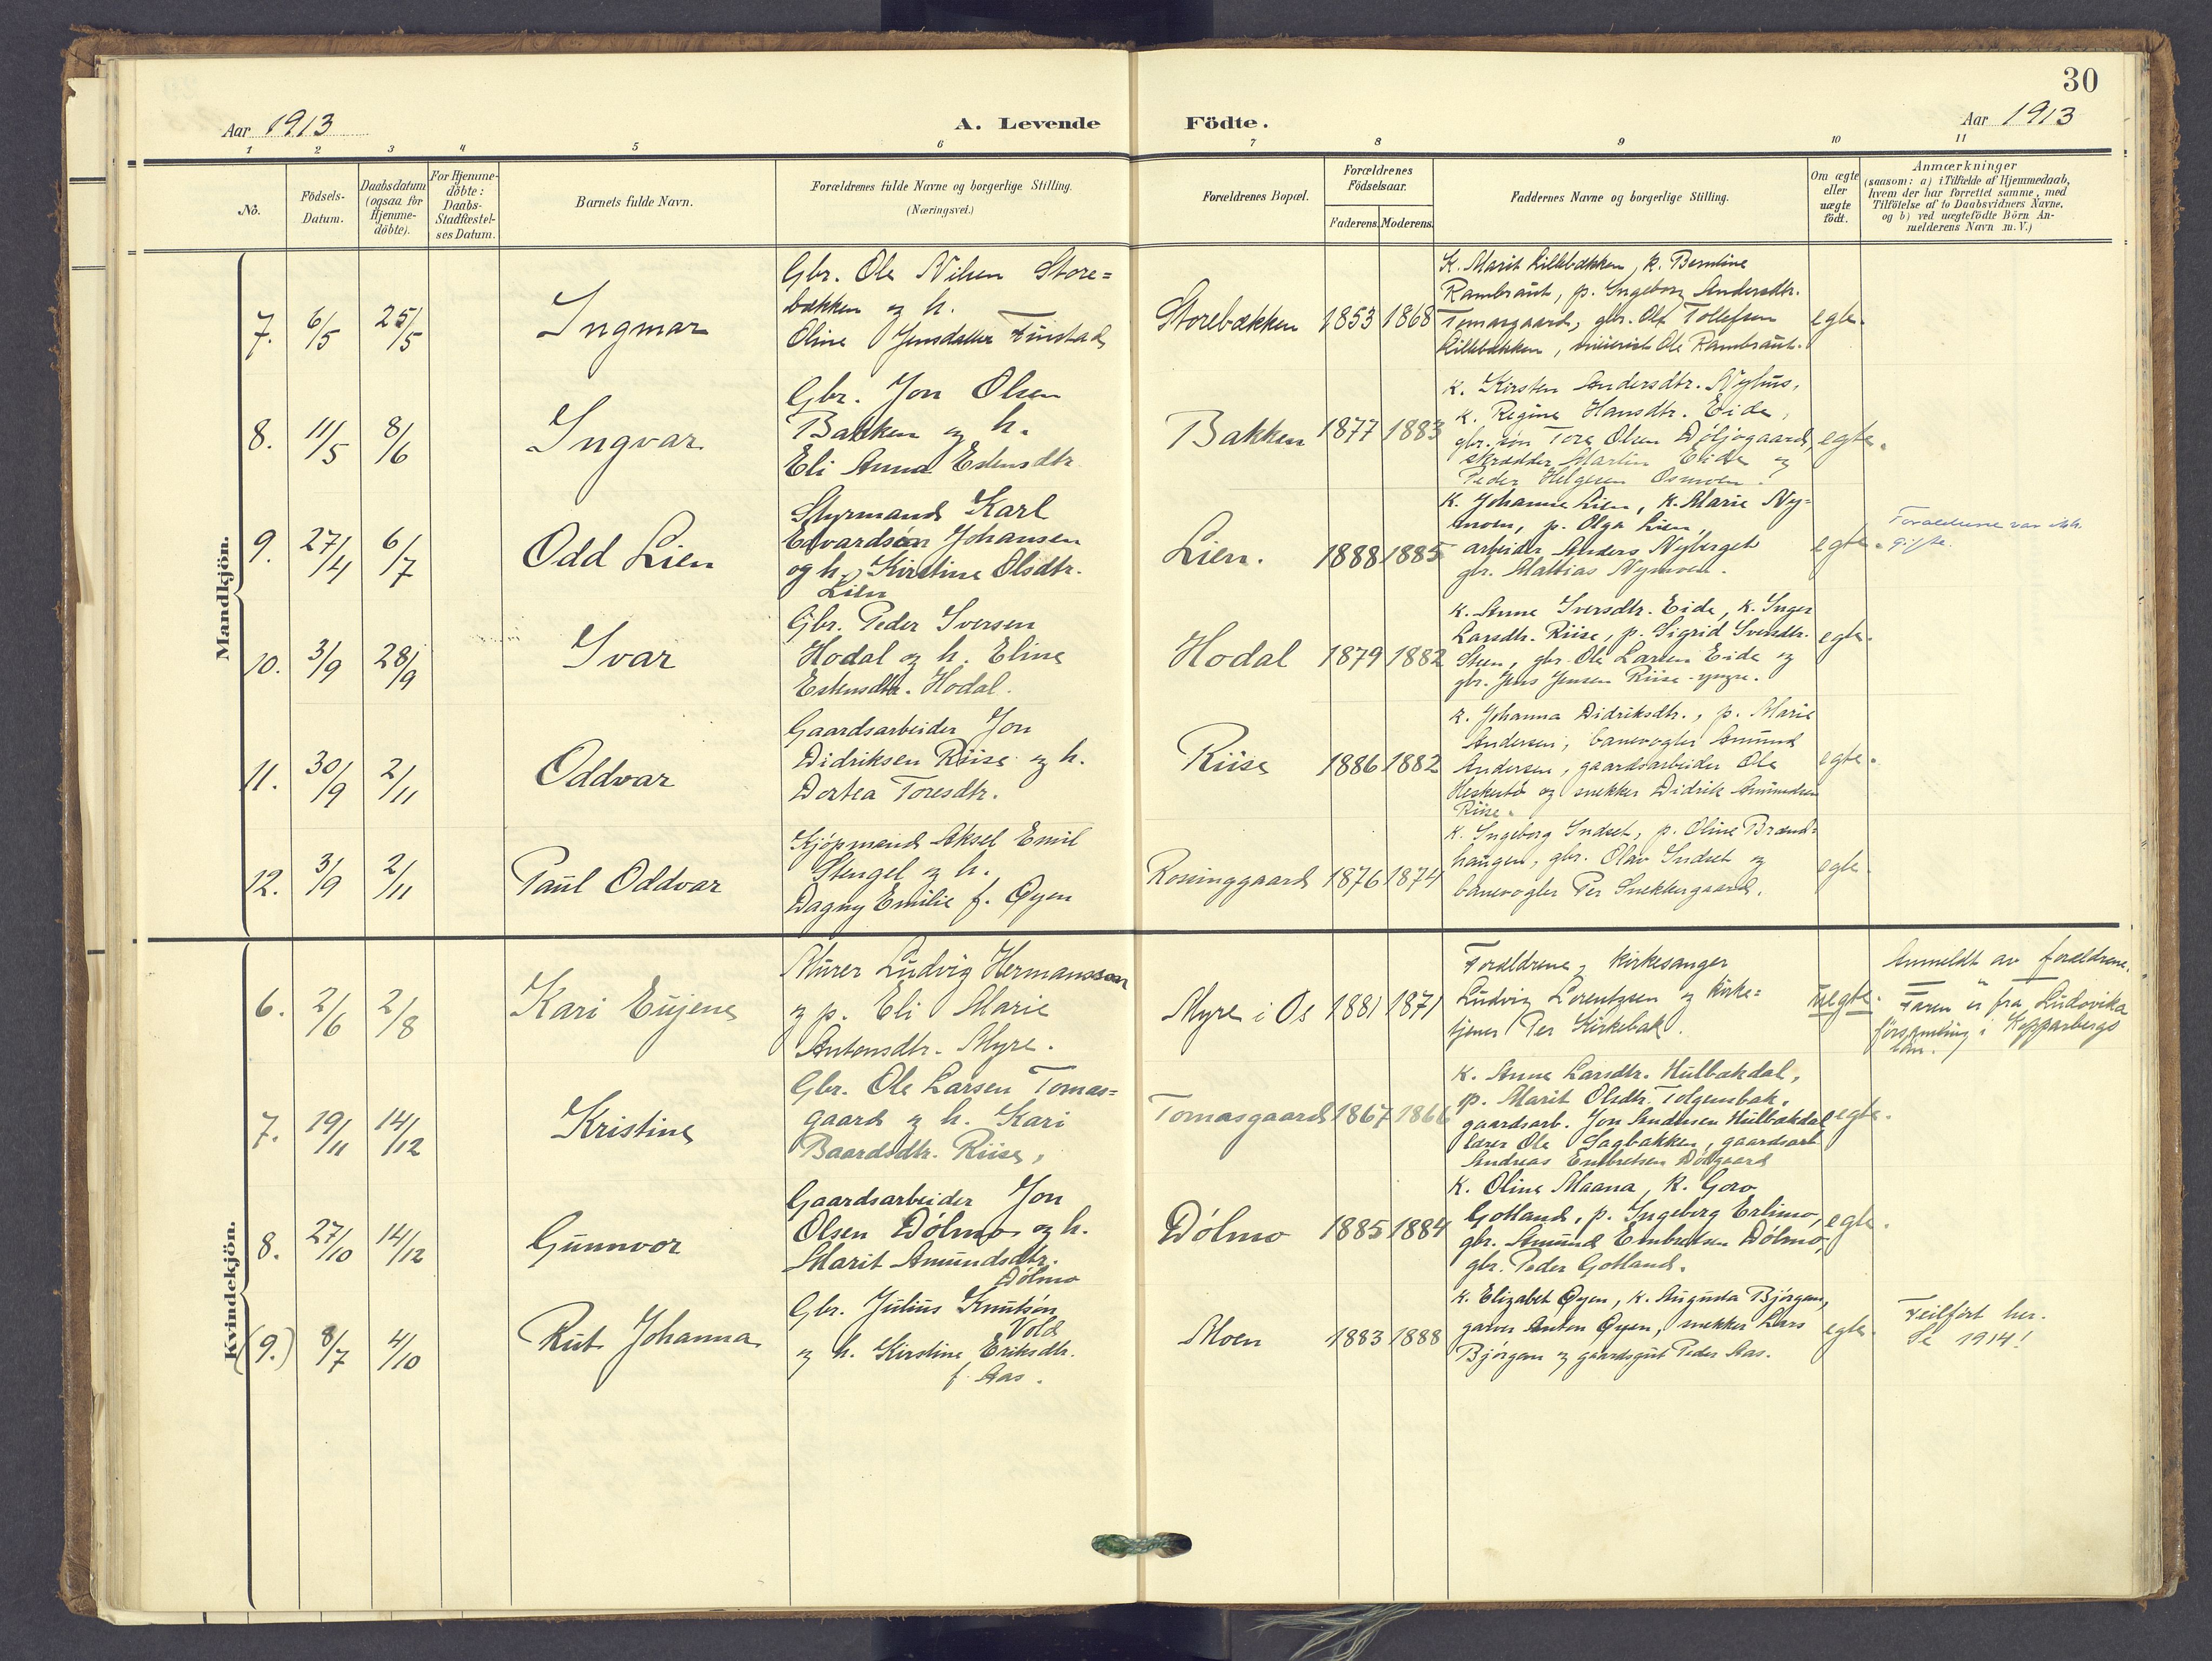 30
Aar 1913
A. Levende
Födte.
Aar 1913
1 2 3 4 5 6 7 8 9 10 11
No.
Födsels-
Datum.
Daabsdatum
(ogsaa for
Hjemme-
döbte).
For Hjemme-
döbte:
Daabs-
Stadfæstel-
ses Datum.
Barnets fulde Navn.
Forældrenes fulde Navne og borgerlige Stilling.
(Næringsvei.)
Forældrenes Bopæl.
Forældrenes
Födselsaar.
Faderens.
Moderens.
Faddernes Navne og borgerlige Stilling.
Om ægte
eller
uægte
födt.
Anmærkninger
(saasom: a) i Tilfælde af Hjemmedaab,
hvem der har forrettet samme, med
Tilföielse af to Daabsvidners Navne,
og b) ved uægtefödte Börn An-
melderens Navn m. V.)
Mandkjön.
7. 6/5 25/5
Ingmar
Gbr. Ole Nilsen Store=
bækken og h.
Oline Jensdatter
Storebækken 1853 1868
K. Marit Lillebækken, k. Berntine
Rambraut, p. Ingeborg Andersdtr.
Tomasgaard, gbr. Ole Tollefsen
Lillebækken, Ole Rambraut.
egte.
8. 11/5 8/6
Ingvar
Gbr. Jon Olsen
Bakken og h.
Eli Anna Estensdtr
Bakken 1877 1883
K. Kirsten Andersdtr. Nyhus,
K. Regine Hansdtr. Eide,
gbr. søn Tore Olsen
skrædder Martin Eide og
Peder Helgesen Osmoen.
egte.
9. 27/4 6/7
Odd Lien
Styrmand Karl
Edvardsen Johansen
og h. Kirstine Olsdtr.
Lien
Lien. 1888 1885
K. Johanne Lien, K. Marie Ny=
moen, p. Olga Lien,
arbeider Anders Nyberget
gbr. Mattias Nymoen.
egte.
Forældrene var ikke
gifte.
10. 3/9 28/9
Ivar
Gbr. Peder Iversen
Hodal og h. Eline
Estensdtr. Hodal.
Hodal 1879 1882
K. Anne Iversdtr. Eide, K. Inger
Larsdtr. Riise, p. Sigrid Iversdtr.
Steen, gbr. Ole Larsen Eide og
gbr. Jens Jensen Riise yngre.
egte.
11. 30/9 2/11
Oddvar
Gaardsarbeider Jon
Didriksen Riise og h.
Dortea Toresdtr.
Riise 1886 1882
K. Johanna Didriksdtr., p. Marie
Andersen, banevogter Amund
Andersen, gaardsarbeider Ole
og snekker Didrik Amundsen
Riise.
egte.
12. 3/9 2/11
Paul Oddvar
Kjöpmand Aksel Emil
Stengel og h.
Dagny Emilie f. Øyen
Rosinggaard 1876 1874
K. Ingeborg Indset, p. Oline Brænd=
haugen, gbr. Olav Indset og
banevogter Per Snekkergaard.
egte.
Kvindekjön.
6. 2/6 2/8
Kari Eujene
Murer Ludvig Hermansson
og p. Eli Marie
Antonsdtr. Myre.
Myre i Os 1881 1871
Forældrene, kirkesanger
Ludvig Lorentzsen og kirke=
tjener Per Kirkebak.
uegte.
Anmeldt av forældrene.
Faren er fra Ludovika
församling i Kopparbergs
län.
7. 19/11 14/12
Kristine
Gbr. Ole Larsen Tomas=
gaard og h. Kari
Baardsdtr. Riise,
Tomasgaard 1867 1866
K. Anne Larsdtr. Hulbækdal,
p. Marit Olsdtr. Tolgensbak,
gaardsarb. Jon Andersen Hulbækdal
lærer Ole Sagbakken, gaardsarb
Andreas Embretsen Dölgaard
egte.
8. 27/10 14/12
Gunnvor
Gaardsarbeider Jon
Olsen Dólmo og h.
Marit Amundsdtr.
Dólmo
Dólmo 1885 1884
K. Oline Maana, K. Goro
Gotland, p. Ingeborg Erlimo,
gbr. Amund Embretsen Dólmo,
gbr. Peder Gotland.
egte.
(9.) 8/7 4/10
Rut Johanna
Gbr. Julius Knutsón
Vold
og h. Kirstine Eriksdtr.
f. Aas.
Moen 1883 1888
K. Elizabet Øyen, K. Augusta Bjórgan,
garver Anton Øyen, snekker Lars
Bjórgan og gaardsgut Peder Aas.
egte.
Feilfört her.
Se 1914!